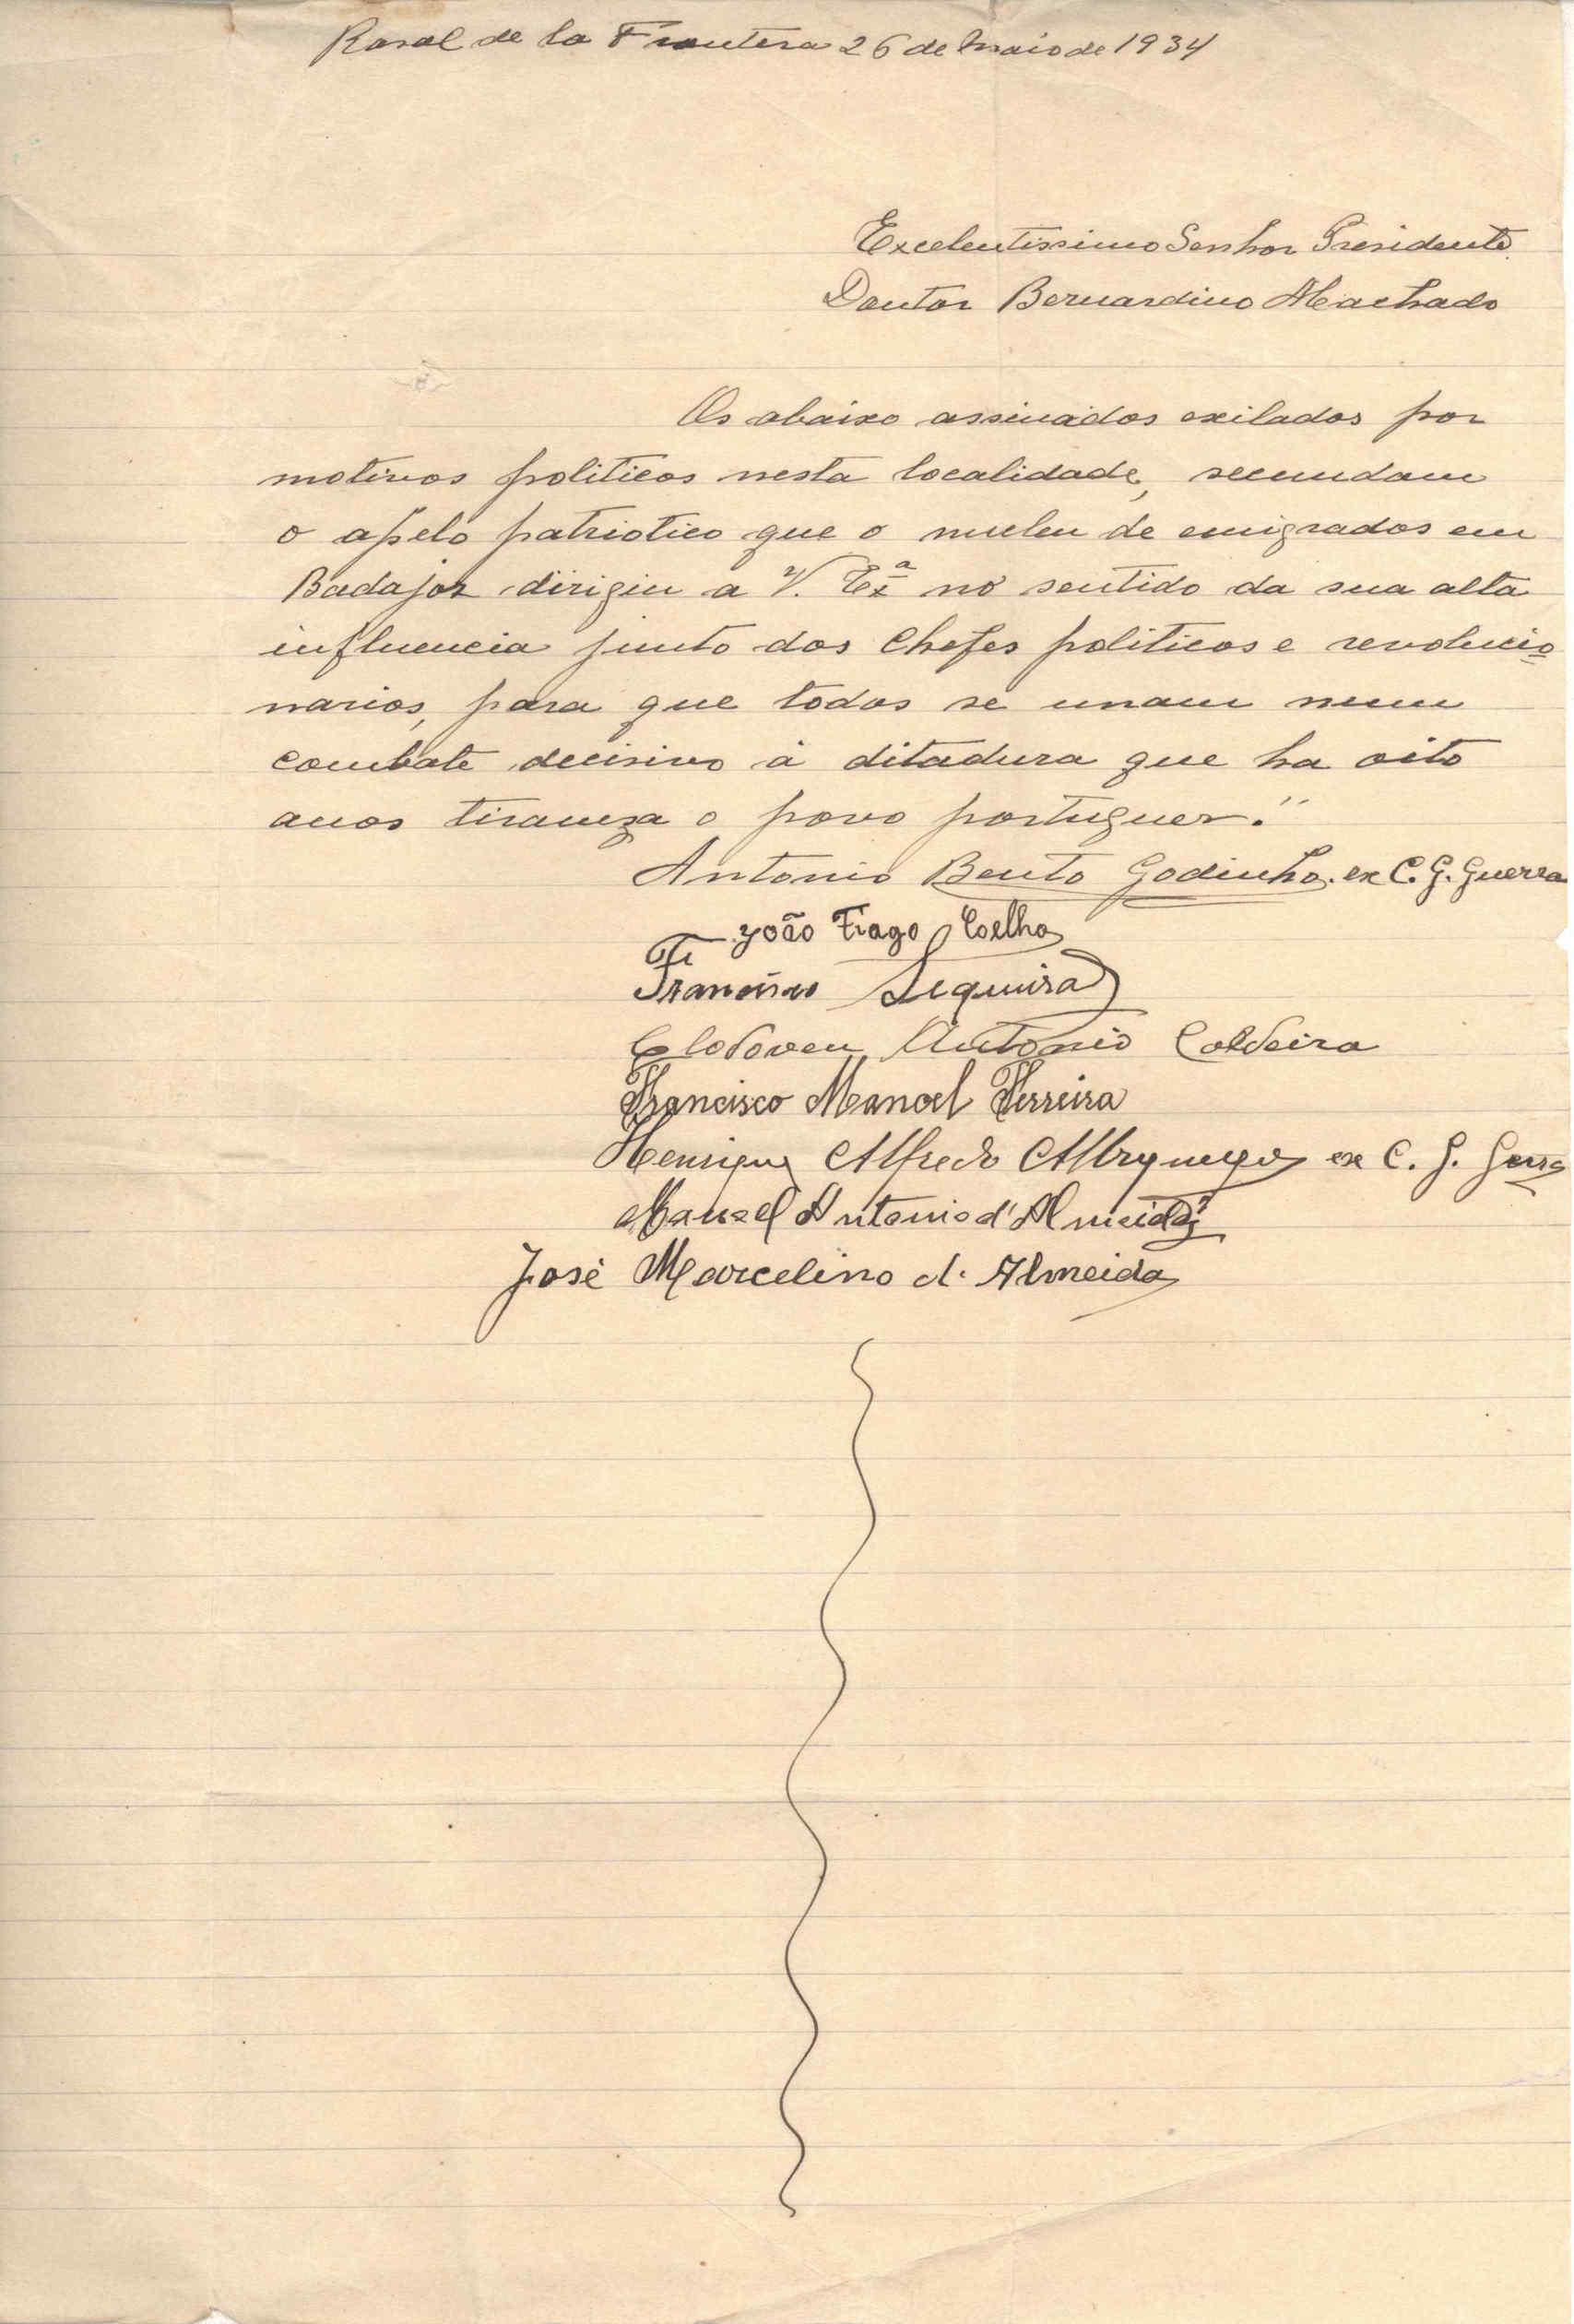 Rosal de la Frontera 26 de Maio de 1934
Excelentissimo Senhor Presidente
Doutor Bernardino Machado
Os abaixo assinados exilados por
motivos politicos nesta localidade, secundam
o apelo patriotico que o nucleu de emigrados em
Badajoz dirigiu a V. Exª no sentido da sua alta
influencia junto dos Chefes politicos e revolucio
narios, para que todos se unam num
combate decisivo á ditadura que ha oito
anos tiraniza o povo portuguez."
Antonio Bento Godinho. ex C. G. Guerra
João Tiago Coelho
Fr
Francisco Sequeira
Clodoveu Antonio Caldeira
Francisco Manoel Ferreira
Henrique Alfredo ex C. G. Guerra
Manoel Antonio d'Almeida
José Marcelino d'Almeida